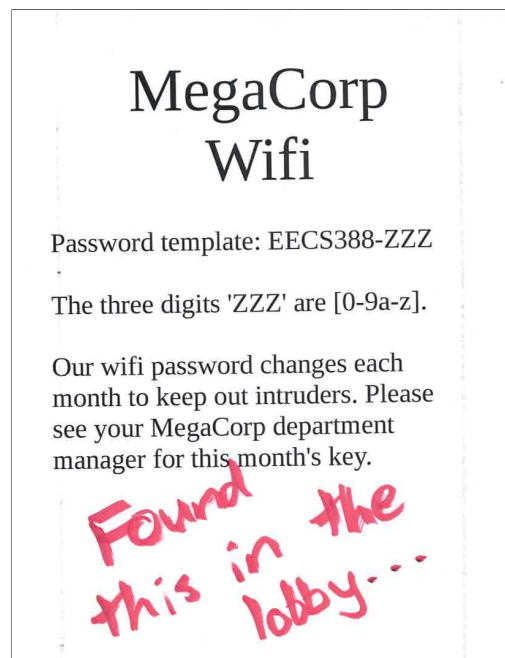 MegaCorp
Wifi
Password template: EECS388-ZZZ
The three digits 'ZZZ' are [0-9a-z].
Our wifi password changes each
month to keep out intruders. Please
see your MegaCorp department
manager for this month's key.
Found the
this in the
lobby...